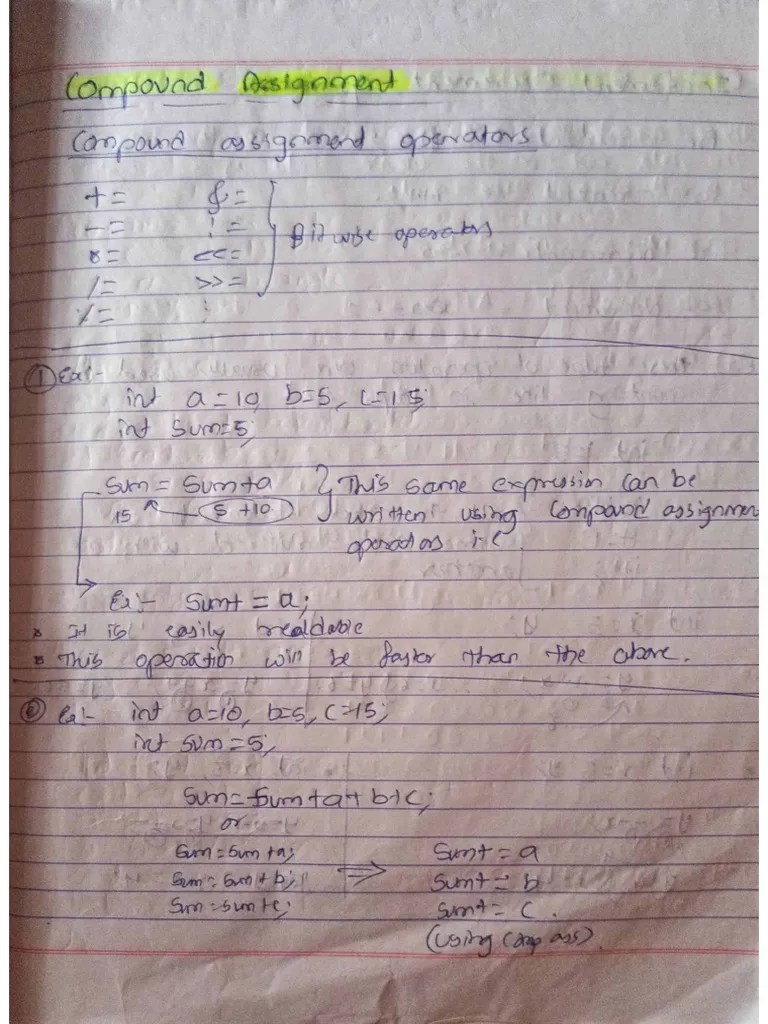 Compound Assignment
Compound assignment operators
+= &=
-= != Bitwise operators
*= <<=
/= >>=
%=
① Ex:-
int a=10, b=5, c=15;
int sum=5;
Sum = Sum+a } This same expression can be
15 5+10 written using compound assignmen
operators i.e.
Ex:- Sum+ = a;
* It is easily readable
* This operation will be faster than the above.
② Ex:- int a=10, b=5, c=15;
int sum=5;
Sum=Sum+a+b+c;
or
Sum=sum+a; ⇒ Sum+=a
Sum=sum+b; Sum+=b
Sum=sum+c; Sum+=c.
(using comp ass).